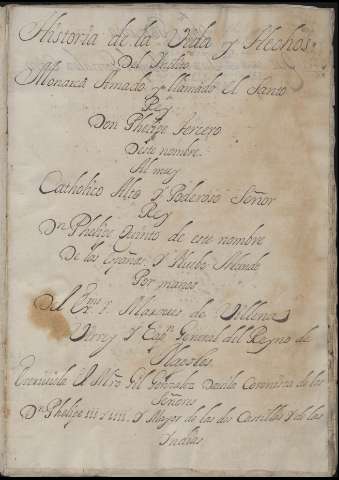 Historia de la Vida y Hechos
Del Inclito
Monarca Amado y llamado el Santo
Rey
Don Phelipe Tercero
Deste nombre.
Al muy
Catholico Alto y Poderoso Señor
Rey
Dn Phelipe Quinto de este nombre
De las Españas. y Nuebo Mundo
Por manos
Del Exmo. Sr. Marques de Villena
Virrey y Capn General del Reyno de
Napoles
Escriviola El Mro Gil Gonzalez Davila Coronista de los
Señores
Dn Phelipe III y IIII. y Mayor de las dos Castillas y de las
Indias